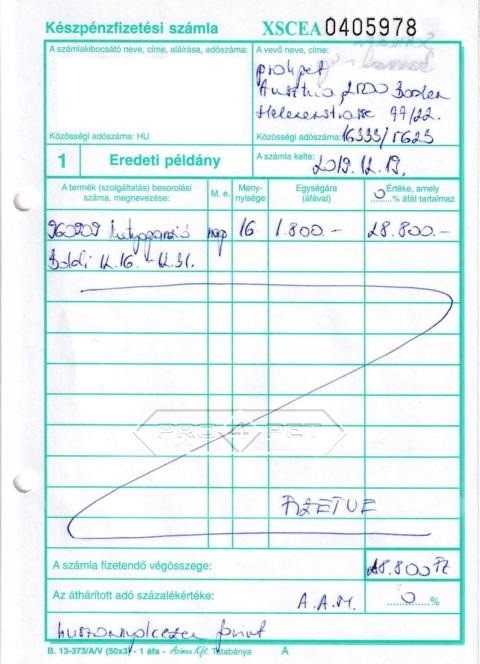 Készpénzfizetési számla XSCEA 0405978
A számlakibocsátó neve, címe, aláírása, adószáma:
Közösségi adószáma: HU
A vevő neve, címe:
pro4pet
Ausztria, 2500 Baden
Helenenstrasse 77/22.
Közösségi adószáma: 16333/5623
1 Eredeti példány A számla kelte: 2019.12.19.
A termék (szolgáltatás) besorolási száma, megnevezése: M. e. Meny-nyisége Egységára (áfával) 0 Értéke, amely % áfát tartalmaz
960909 kutyapanzió nap 16 1.800.- 28.800.-
Boldi 12.16. -12.31.
PRO4PET
FIZETVE
A számla fizetendő végösszege: 28.800 Ft
Az áthárított adó százalékértéke: A.A.M. 0 %
forint
B. 13-373/A/V (50x3) - 1 áfa - Azimex Kft. Tatabánya A